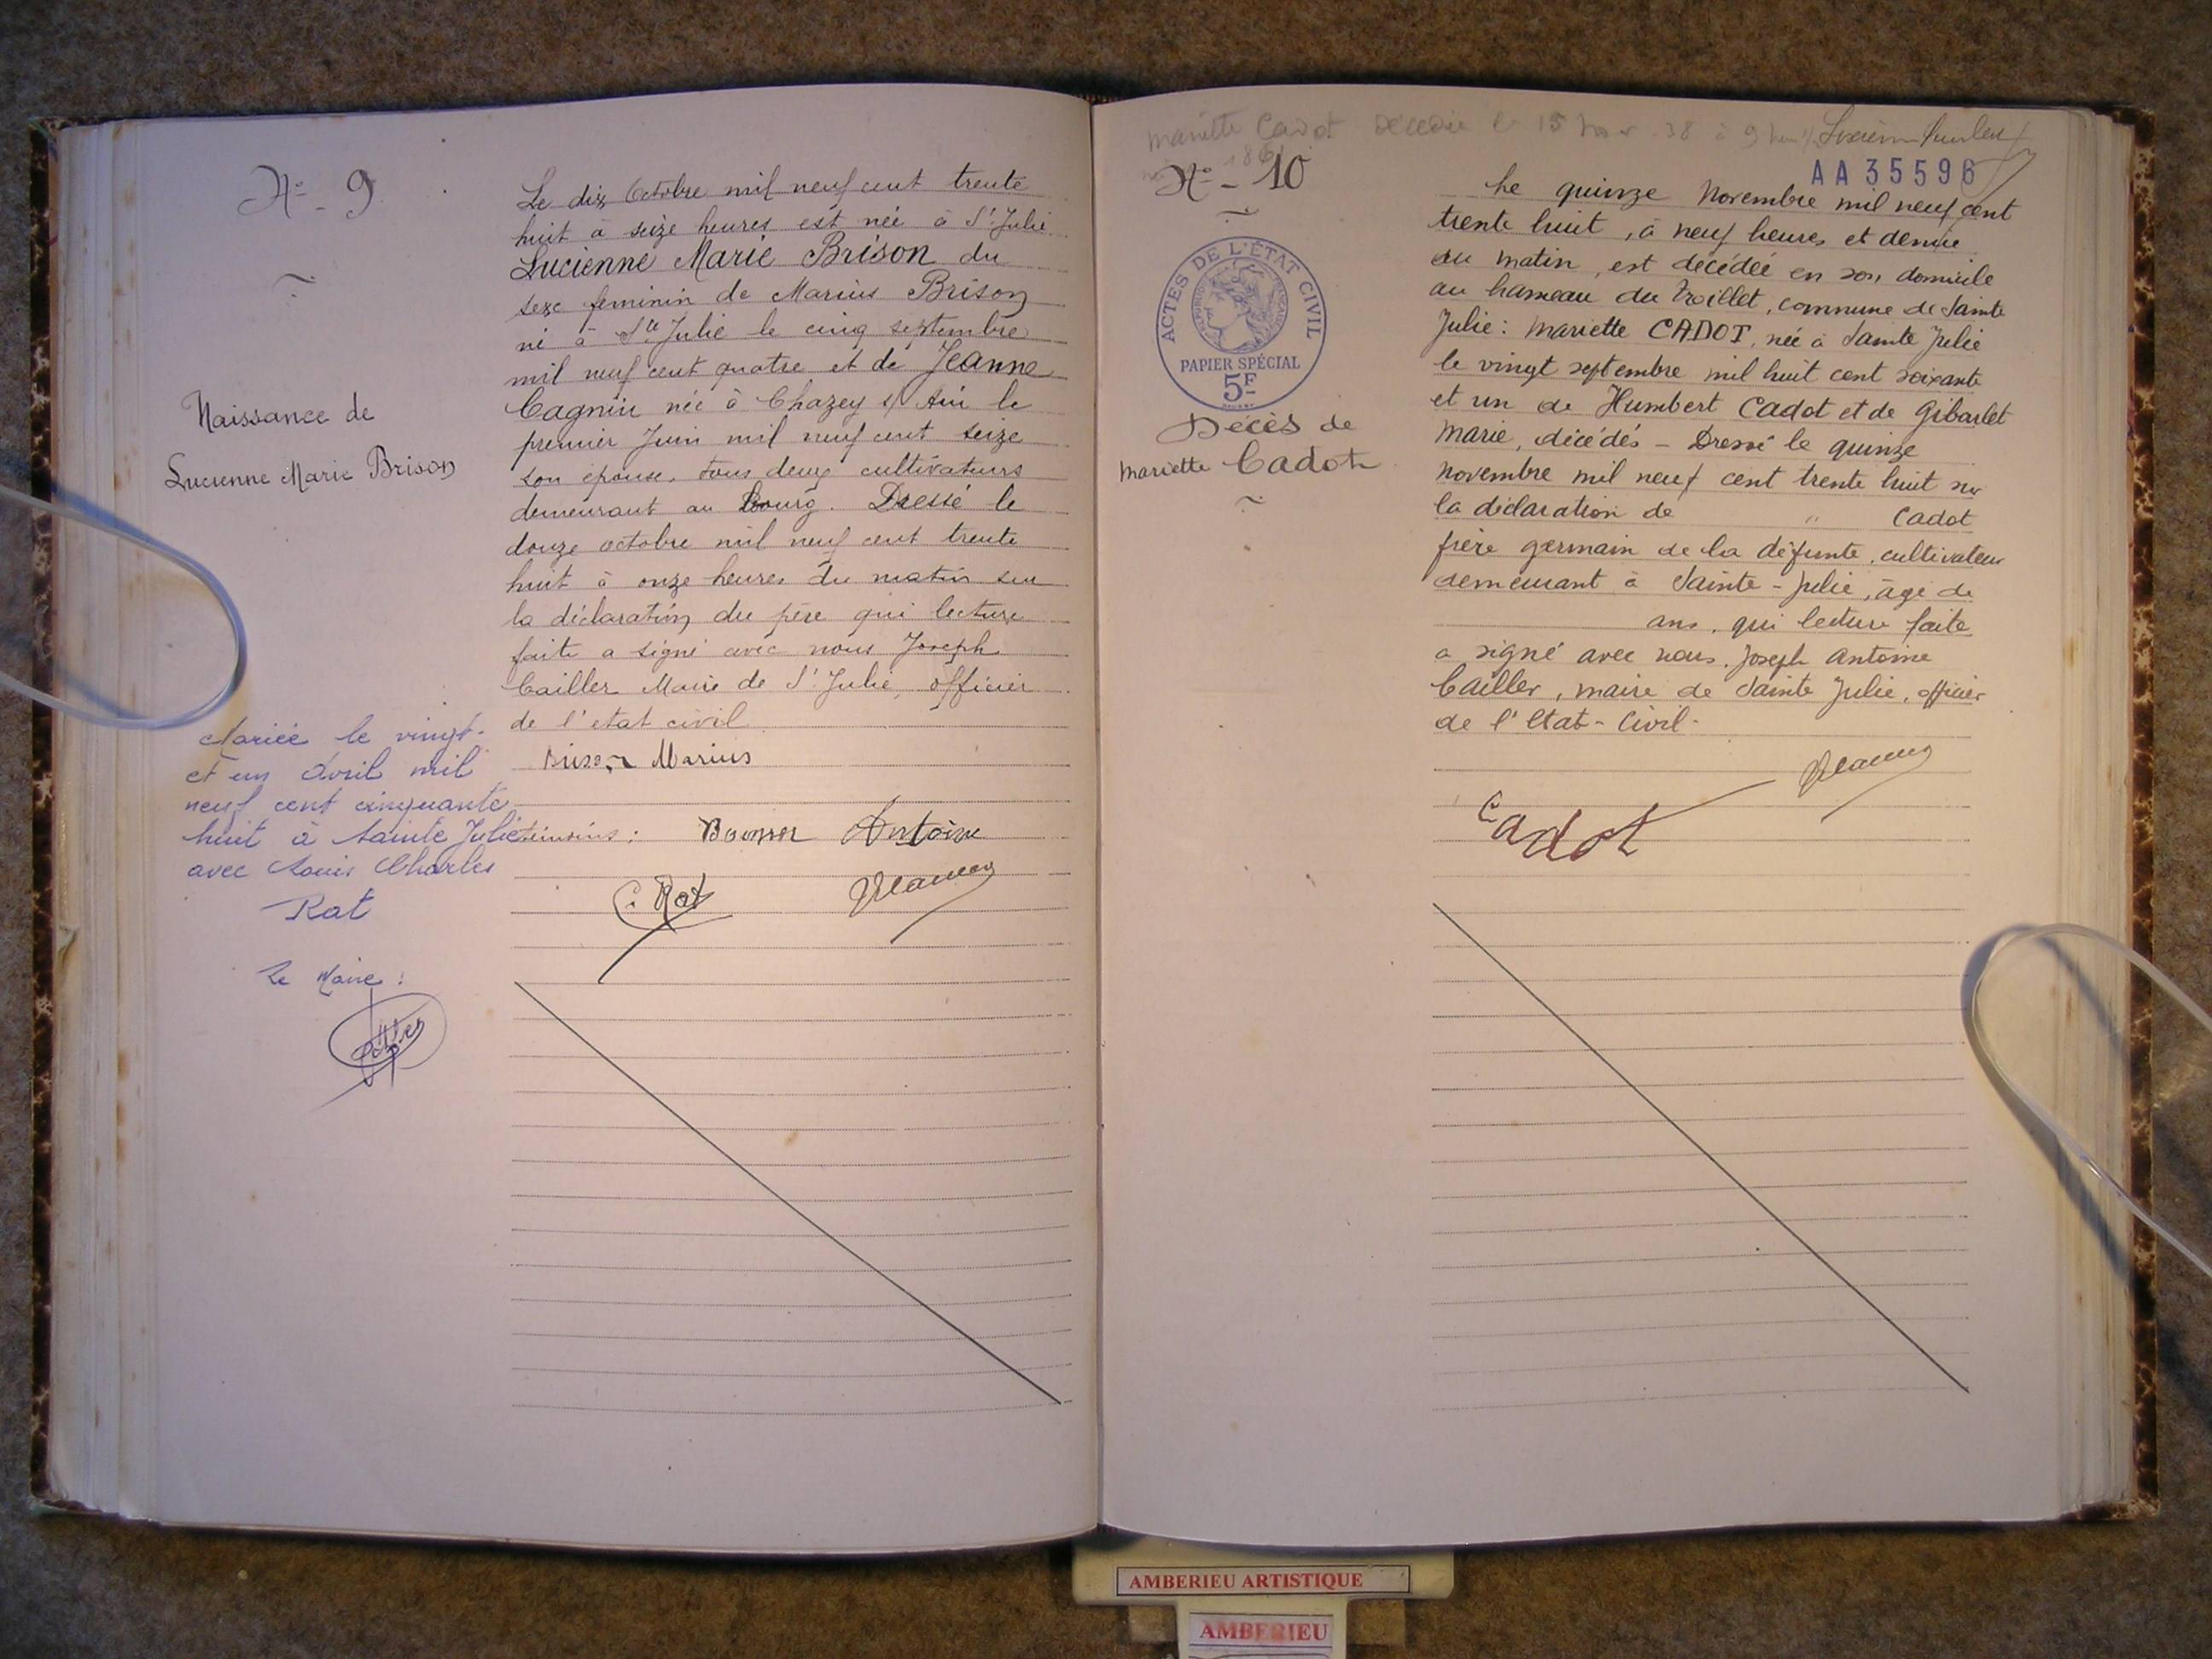 N° - 9
Naissance de
Lucienne Marie Brison
Le dix Octobre mil neuf cent trente
huit à seize heures est née à Ste Julie
Lucienne Marie Brison du
sexe feminin de Marius Brison
né à Ste Julie le cinq septembre
mil neuf cent quatre et de Jeanne
Cagnin née à Chazey s/ Ain le
premier Juin mil neuf cent seize
son épouse, tous deux cultivateurs
demeurant au Bourg. Dressé le
douze octobre mil neuf cent trente
huit à onze heures du matin sur
la déclaration du père qui lecture
faite a signé avec nous Joseph
Cailler Maire de St Julie, officier
de l'etat civil
Brison Marius
témoins : Antoine
C. Rat
Mariée le vingt-
et un Avril mil
neuf cent cinquante
huit à Sainte Julie
avec Louis Charles
Rat
Le Maire :
Mariette Cadot Décédée le 15 nov 38 à 9 heu
1861
AA 35596
N° - 10
ACTES DE L'ÉTAT CIVIL
RÉPUBLIQUE FRANÇAISE
PAPIER SPÉCIAL
5F
Décès de
Mariette Cadot
Le quinze Novembre mil neuf cent
trente huit, à neuf heures et demie
du matin, est décédée en son domicile
au hameau du Troillet, commune de Sainte
Julie : Mariette CADOT, née à Sainte Julie
le vingt septembre mil huit cent soixante
et un de Humbert Cadot et de Gibarlet
Marie, décédés - Dressé le quinze
novembre mil neuf cent trente huit sur
la déclaration de " Cadot
frère germain de la défunte, cultivateur
demeurant à Sainte-Julie, âgé de
ans, qui lecture faite
a signé avec nous, Joseph Antoine
Cailler, maire de Sainte Julie, officier
de l'Etat-Civil-
Cadot
AMBERIEU ARTISTIQUE
AMBERIEU